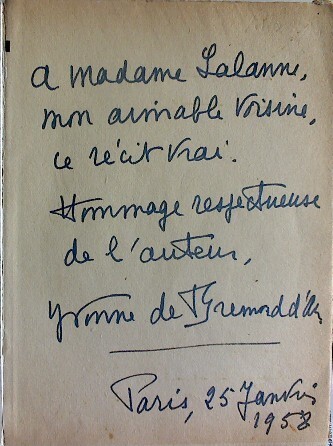 a madame Lalanne,
mon aimable voisine,
ce récit vrai.
Hommage respectueuse
de l'auteur,
Yvonne de Brémond d'Ars
Paris, 25 Janvier
1958